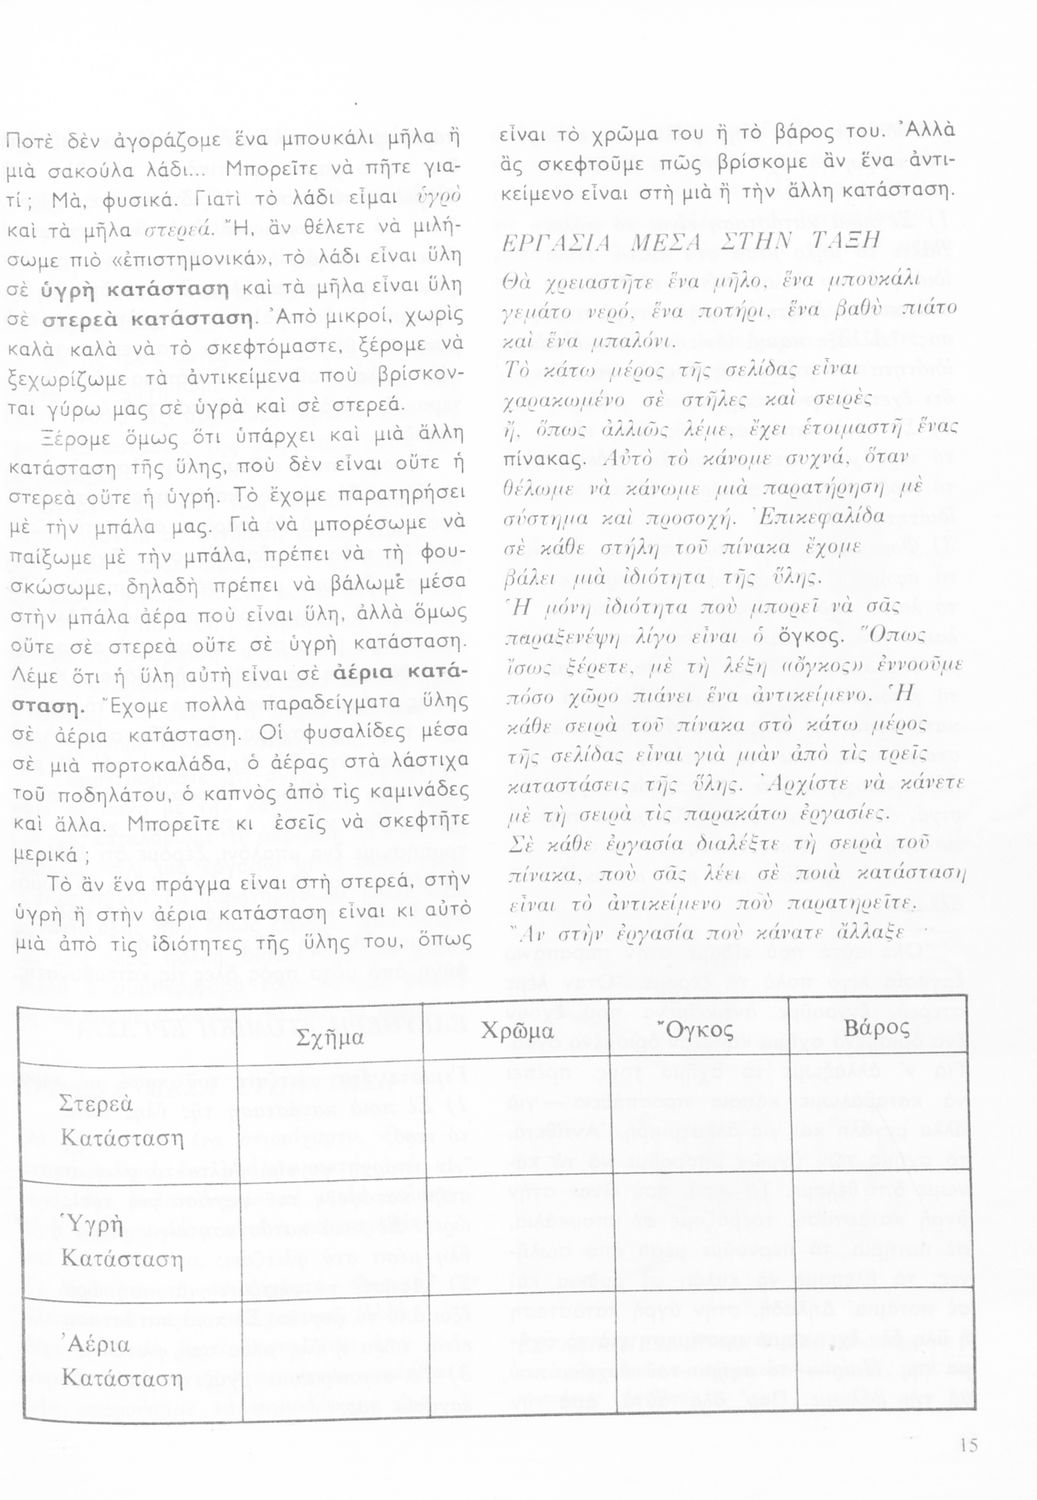 Ποτὲ δὲν ἀγοράζομε ἕνα μπουκάλι μῆλα ἢ
μιὰ σακούλα λάδι... Μπορεῖτε νὰ πῆτε για-
τί; Μά, φυσικά. Γιατὶ τὸ λάδι εἶμαι ὑγρὸ
καὶ τὰ μῆλα στερεά. Ἤ, ἂν θέλετε νὰ μιλή-
σωμε πιὸ «ἐπιστημονικά», τὸ λάδι εἶναι ὕλη
σὲ ὑγρὴ κατάσταση καὶ τὰ μῆλα εἶναι ὕλη
σὲ στερεὰ κατάσταση. Ἀπὸ μικροί, χωρὶς
καλὰ καλὰ νὰ τὸ σκεφτόμαστε, ξέρομε νὰ
ξεχωρίζωμε τὰ ἀντικείμενα ποὺ βρίσκον-
ται γύρω μας σὲ ὑγρὰ καὶ σὲ στερεά.
Ξέρομε ὅμως ὅτι ὑπάρχει καὶ μιὰ ἄλλη
κατάσταση τῆς ὕλης, ποὺ δὲν εἶναι οὔτε ἡ
στερεὰ οὔτε ἡ ὑγρή. Τὸ ἔχομε παρατηρήσει
μὲ τὴν μπάλα μας. Γιὰ νὰ μπορέσωμε νὰ
παίξωμε μὲ τὴν μπάλα, πρέπει νὰ τὴ φου-
σκώσωμε, δηλαδὴ πρέπει νὰ βάλωμε μέσα
στὴν μπάλα ἀέρα ποὺ εἶναι ὕλη, ἀλλὰ ὅμως
οὔτε σὲ στερεὰ οὔτε σὲ ὑγρὴ κατάσταση.
Λέμε ὅτι ἡ ὕλη αὐτὴ εἶναι σὲ ἀέρια κατά-
σταση. Ἔχομε πολλὰ παραδείγματα ὕλης
σὲ ἀέρια κατάσταση. Οἱ φυσαλίδες μέσα
σὲ μιὰ πορτοκαλάδα, ὁ ἀέρας στὰ λάστιχα
τοῦ ποδηλάτου, ὁ καπνὸς ἀπὸ τὶς καμινάδες
καὶ ἄλλα. Μπορεῖτε κι ἐσεῖς νὰ σκεφτῆτε
μερικά;
Τὸ ἂν ἕνα πράγμα εἶναι στὴ στερεά, στὴν
ὑγρὴ ἢ στὴν ἀέρια κατάσταση εἶναι κι αὐτὸ
μιὰ ἀπὸ τὶς ἰδιότητες τῆς ὕλης του, ὅπως
εἶναι τὸ χρῶμα του ἢ τὸ βάρος του. Ἀλλὰ
ἂς σκεφτοῦμε πῶς βρίσκομε ἂν ἕνα ἀντι-
κείμενο εἶναι στὴ μιὰ ἢ τὴν ἄλλη κατάσταση.
ΕΡΓΑΣΙΑ ΜΕΣΑ ΣΤΗΝ ΤΑΞΗ
Θὰ χρειαστῆτε ἕνα μῆλο, ἕνα μπουκάλι
γεμάτο νερό, ἕνα ποτήρι, ἕνα βαθὺ πιάτο
καὶ ἕνα μπαλόνι.
Τὸ κάτω μέρος τῆς σελίδας εἶναι
χαρακωμένο σὲ στῆλες καὶ σειρὲς
ἤ, ὅπως ἀλλιῶς λέμε, ἔχει ἑτοιμαστῆ ἕνας
πίνακας. Αὐτὸ τὸ κάνομε συχνά, ὅταν
θέλωμε νὰ κάνωμε μιὰ παρατήρηση μὲ
σύστημα καὶ προσοχή. Ἐπικεφαλίδα
σὲ κάθε στήλη τοῦ πίνακα ἔχομε
βάλει μιὰ ἰδιότητα τῆς ὕλης.
Ἡ μόνη ἰδιότητα ποὺ μπορεῖ νὰ σᾶς
παραξενέψη λίγο εἶναι ὁ ὄγκος. Ὅπως
ἴσως ξέρετε, μὲ τὴ λέξη «ὄγκος» ἐννοοῦμε
πόσο χῶρο πιάνει ἕνα ἀντικείμενο. Ἡ
κάθε σειρὰ τοῦ πίνακα στὸ κάτω μέρος
τῆς σελίδας εἶναι γιὰ μιὰν ἀπὸ τὶς τρεῖς
καταστάσεις τῆς ὕλης. Ἀρχίστε νὰ κάνετε
μὲ τὴ σειρὰ τὶς παρακάτω ἐργασίες.
Σὲ κάθε ἐργασία διαλέξτε τὴ σειρὰ τοῦ
πίνακα, ποὺ σᾶς λέει σὲ ποιὰ κατάσταση
εἶναι τὸ ἀντικείμενο ποὺ παρατηρεῖτε.
Ἂν στὴν ἐργασία ποὺ κάνατε ἄλλαξε
Σχῆμα Χρῶμα Ὄγκος Βάρος
Στερεὰ
Κατάσταση
Ὑγρὴ
Κατάσταση
Ἀέρια
Κατάσταση
15